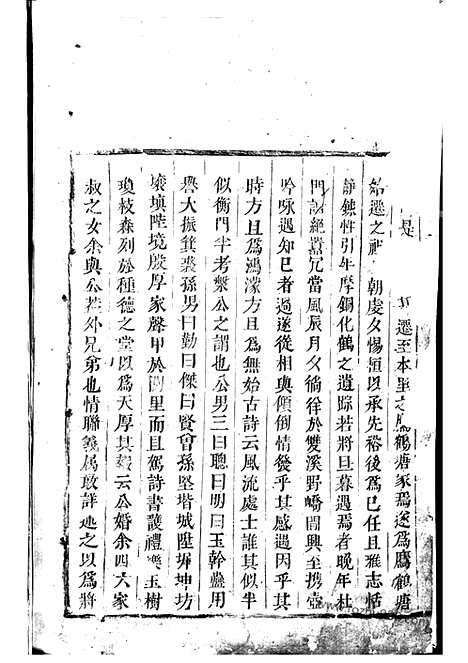 是 遷至本里之 鶴塘家焉遂為鷹鶴塘
始遷之祖 朝處夕惕恒以承先裕後為己任且雅志恬
靜鍊性引年摩銅化鶴之遺踪若將旦暮遇焉者晚年杜
門 絕囂冗當風辰月夕徜徉於雙溪野嶠間興至携壺
吟咏遇知己者過遂從相與傾倒情發乎其感遇因乎其
時方且為鴻濛方且為無始古詩云風流處士誰其似半
似衡門半考槃公之謂也公男三曰聰曰明曰玉幹蠱用
譽大振箕裘孫男曰勤曰傑曰賢會孫堅堦城陞墀坤坊
壞塡陛境殷厚家聲甲於閭里而且駕詩書 禮樂玉樹
瓊枝森列於種德之堂以為天厚其 云公婚余四六家
叔之女余與公 外兄弟也情聯義属敢詳述之以為將